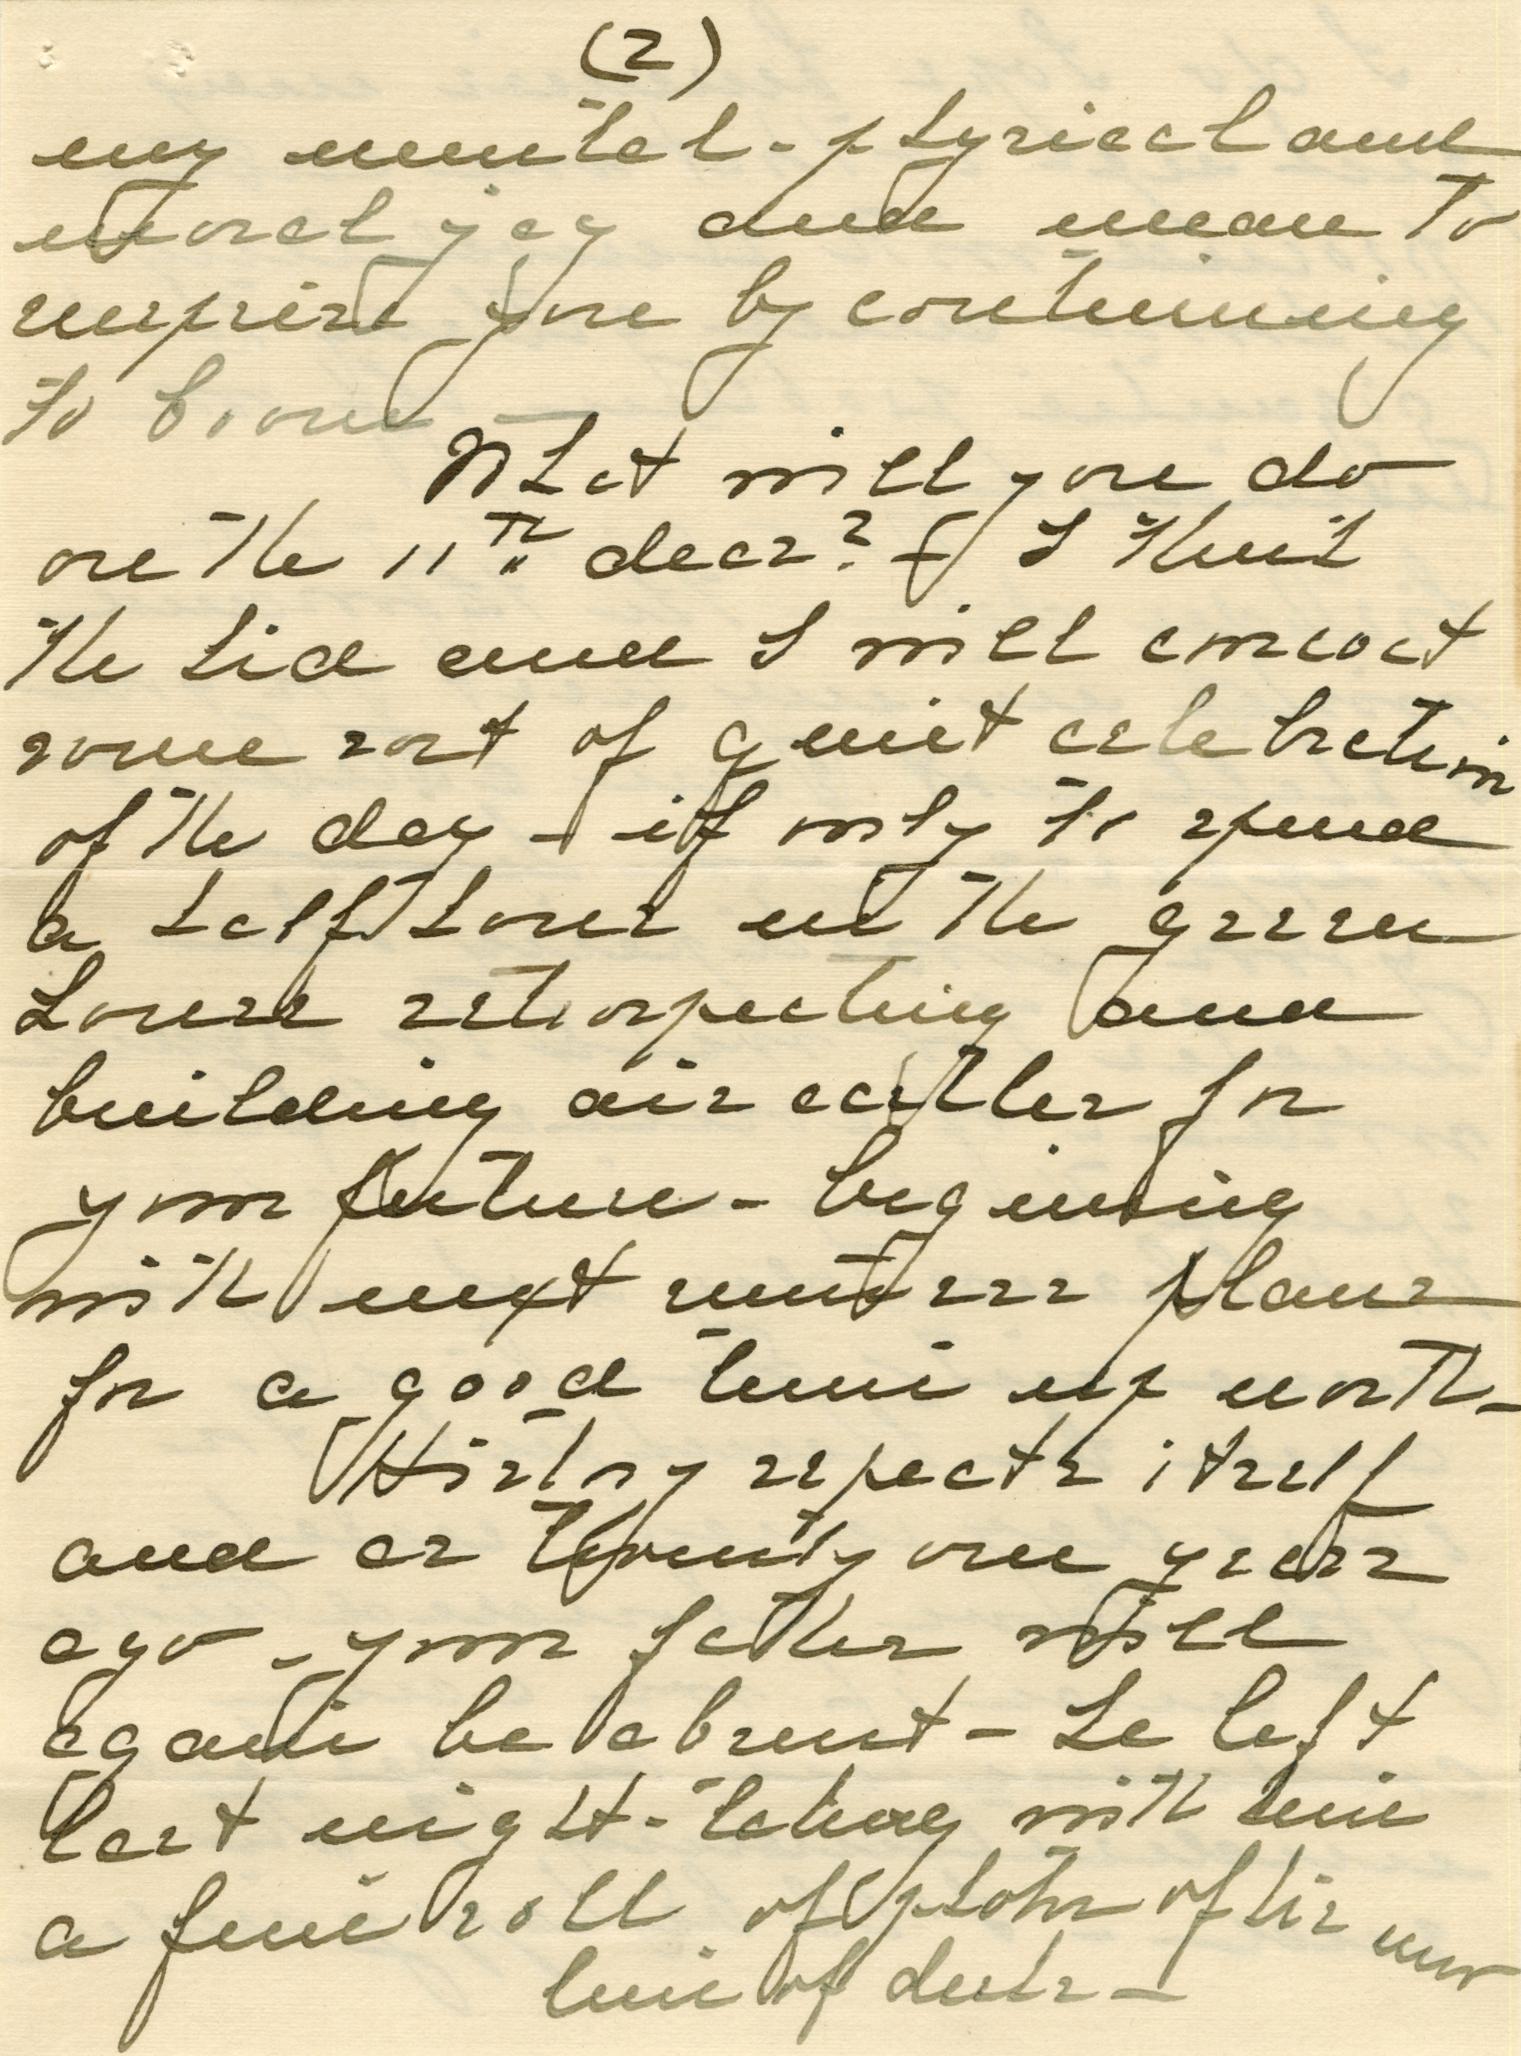 (2)
my mental - physical and
moral joy and mean to
surprise you by continuing
to bloom —
What will you do
on the 11th dear? — I think
the kid and I will concoct
some sort of quiet celebration
of the day - if only to spend
a half hour in the green
house retrospecting and
building air castles for
your future - begining
with next summer plans
for a good time up north -
History repeats itself
and as twenty one years
ago - your father will
again be absent - he left
last night - taking with him
a fine roll of photos of his new
line of desks -